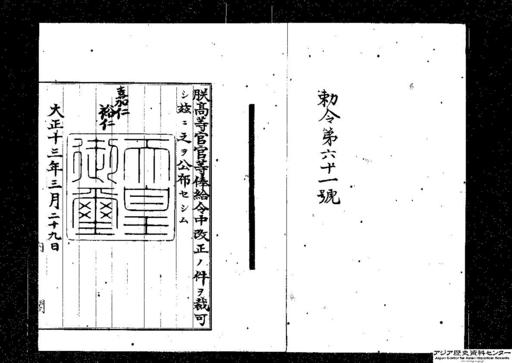 勅令第六十一號
朕高等官官等俸給令中改正ノ件ヲ裁可
シ茲ニ之ヲ公布セシム
嘉仁
裕仁
天皇御璽
大正十三年三月二十九日
内閣
アジア歴史資料センター
Japan Center for Asian Historical Records